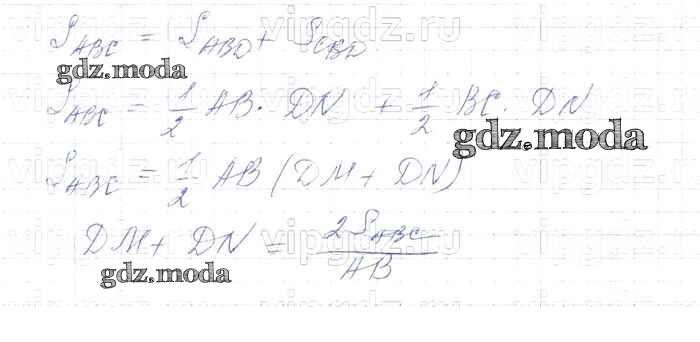 S_ABC = S_ABD + S_CBD
gdz.moda
S_ABC = 1/2 AB · DN + 1/2 BC · DN
gdz.moda
S_ABC = 1/2 AB (DM + DN)
DM + DN = 2S_ABC / AB
gdz.moda
vipgdz.ru